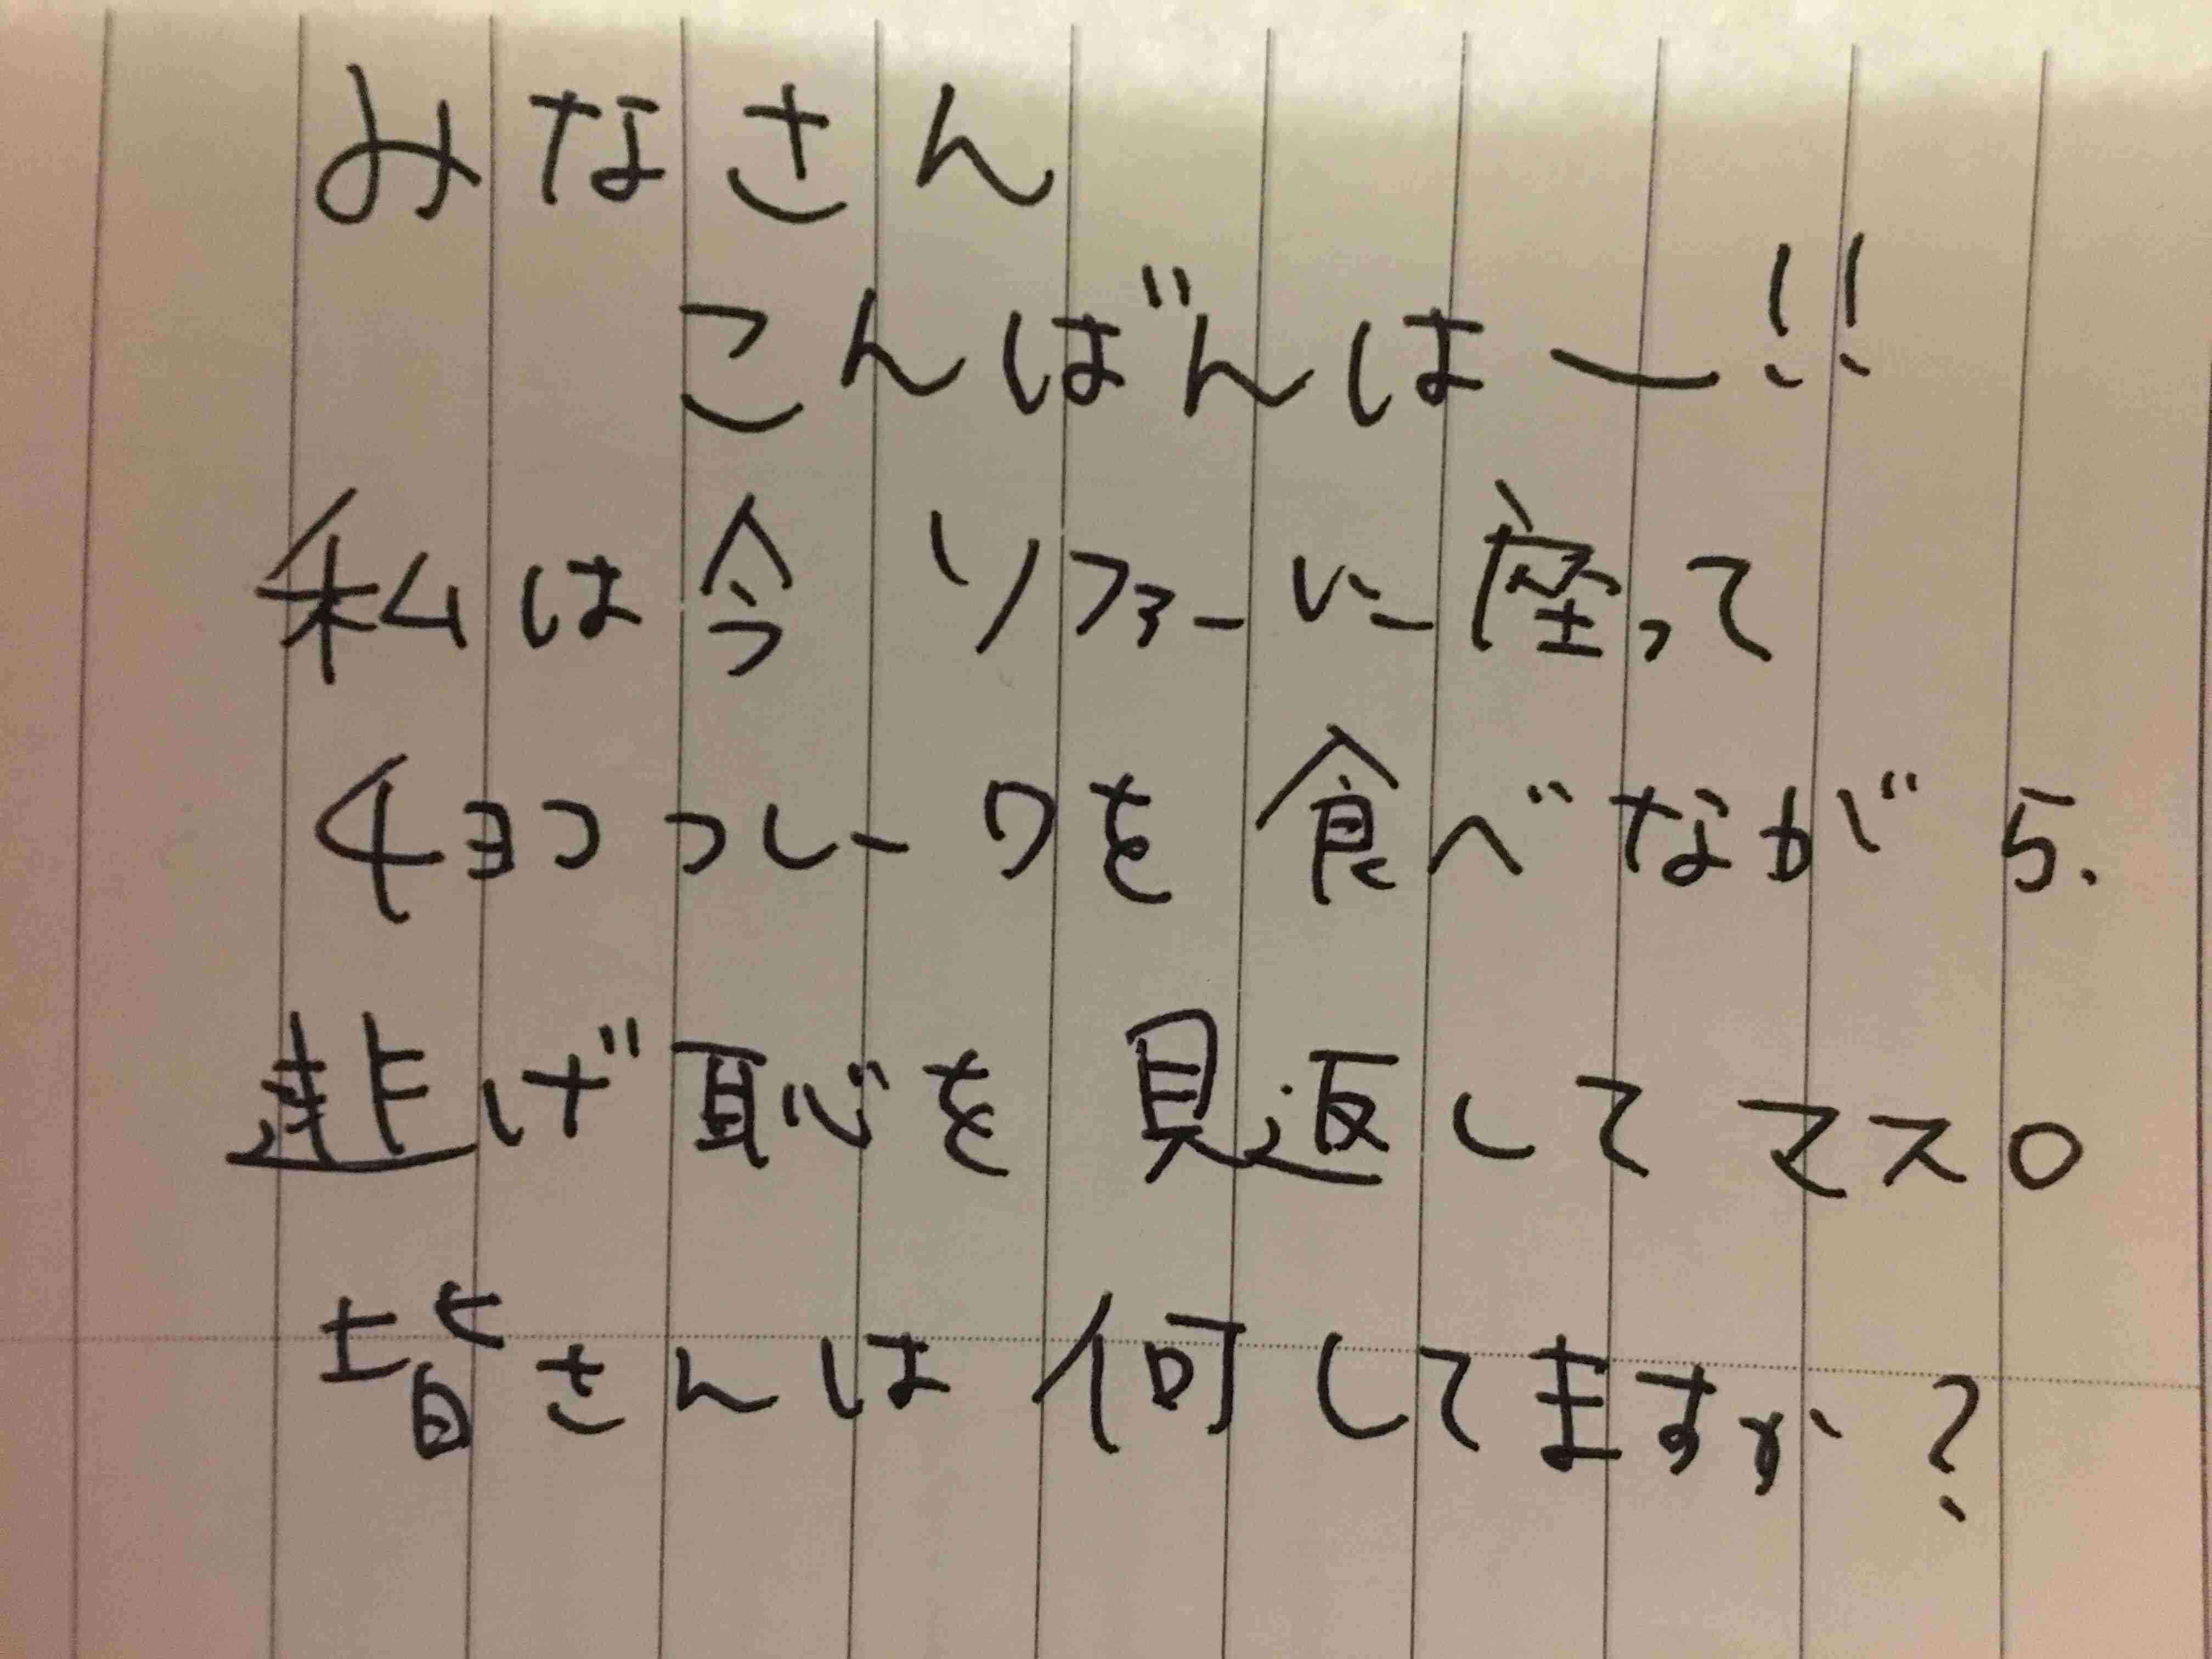 みなさん
こんばんはー!!
私は今 ソファーに座って
チョコフレークを食べながら、
逃げ恥を見返してマス。
皆さんは何してますか?